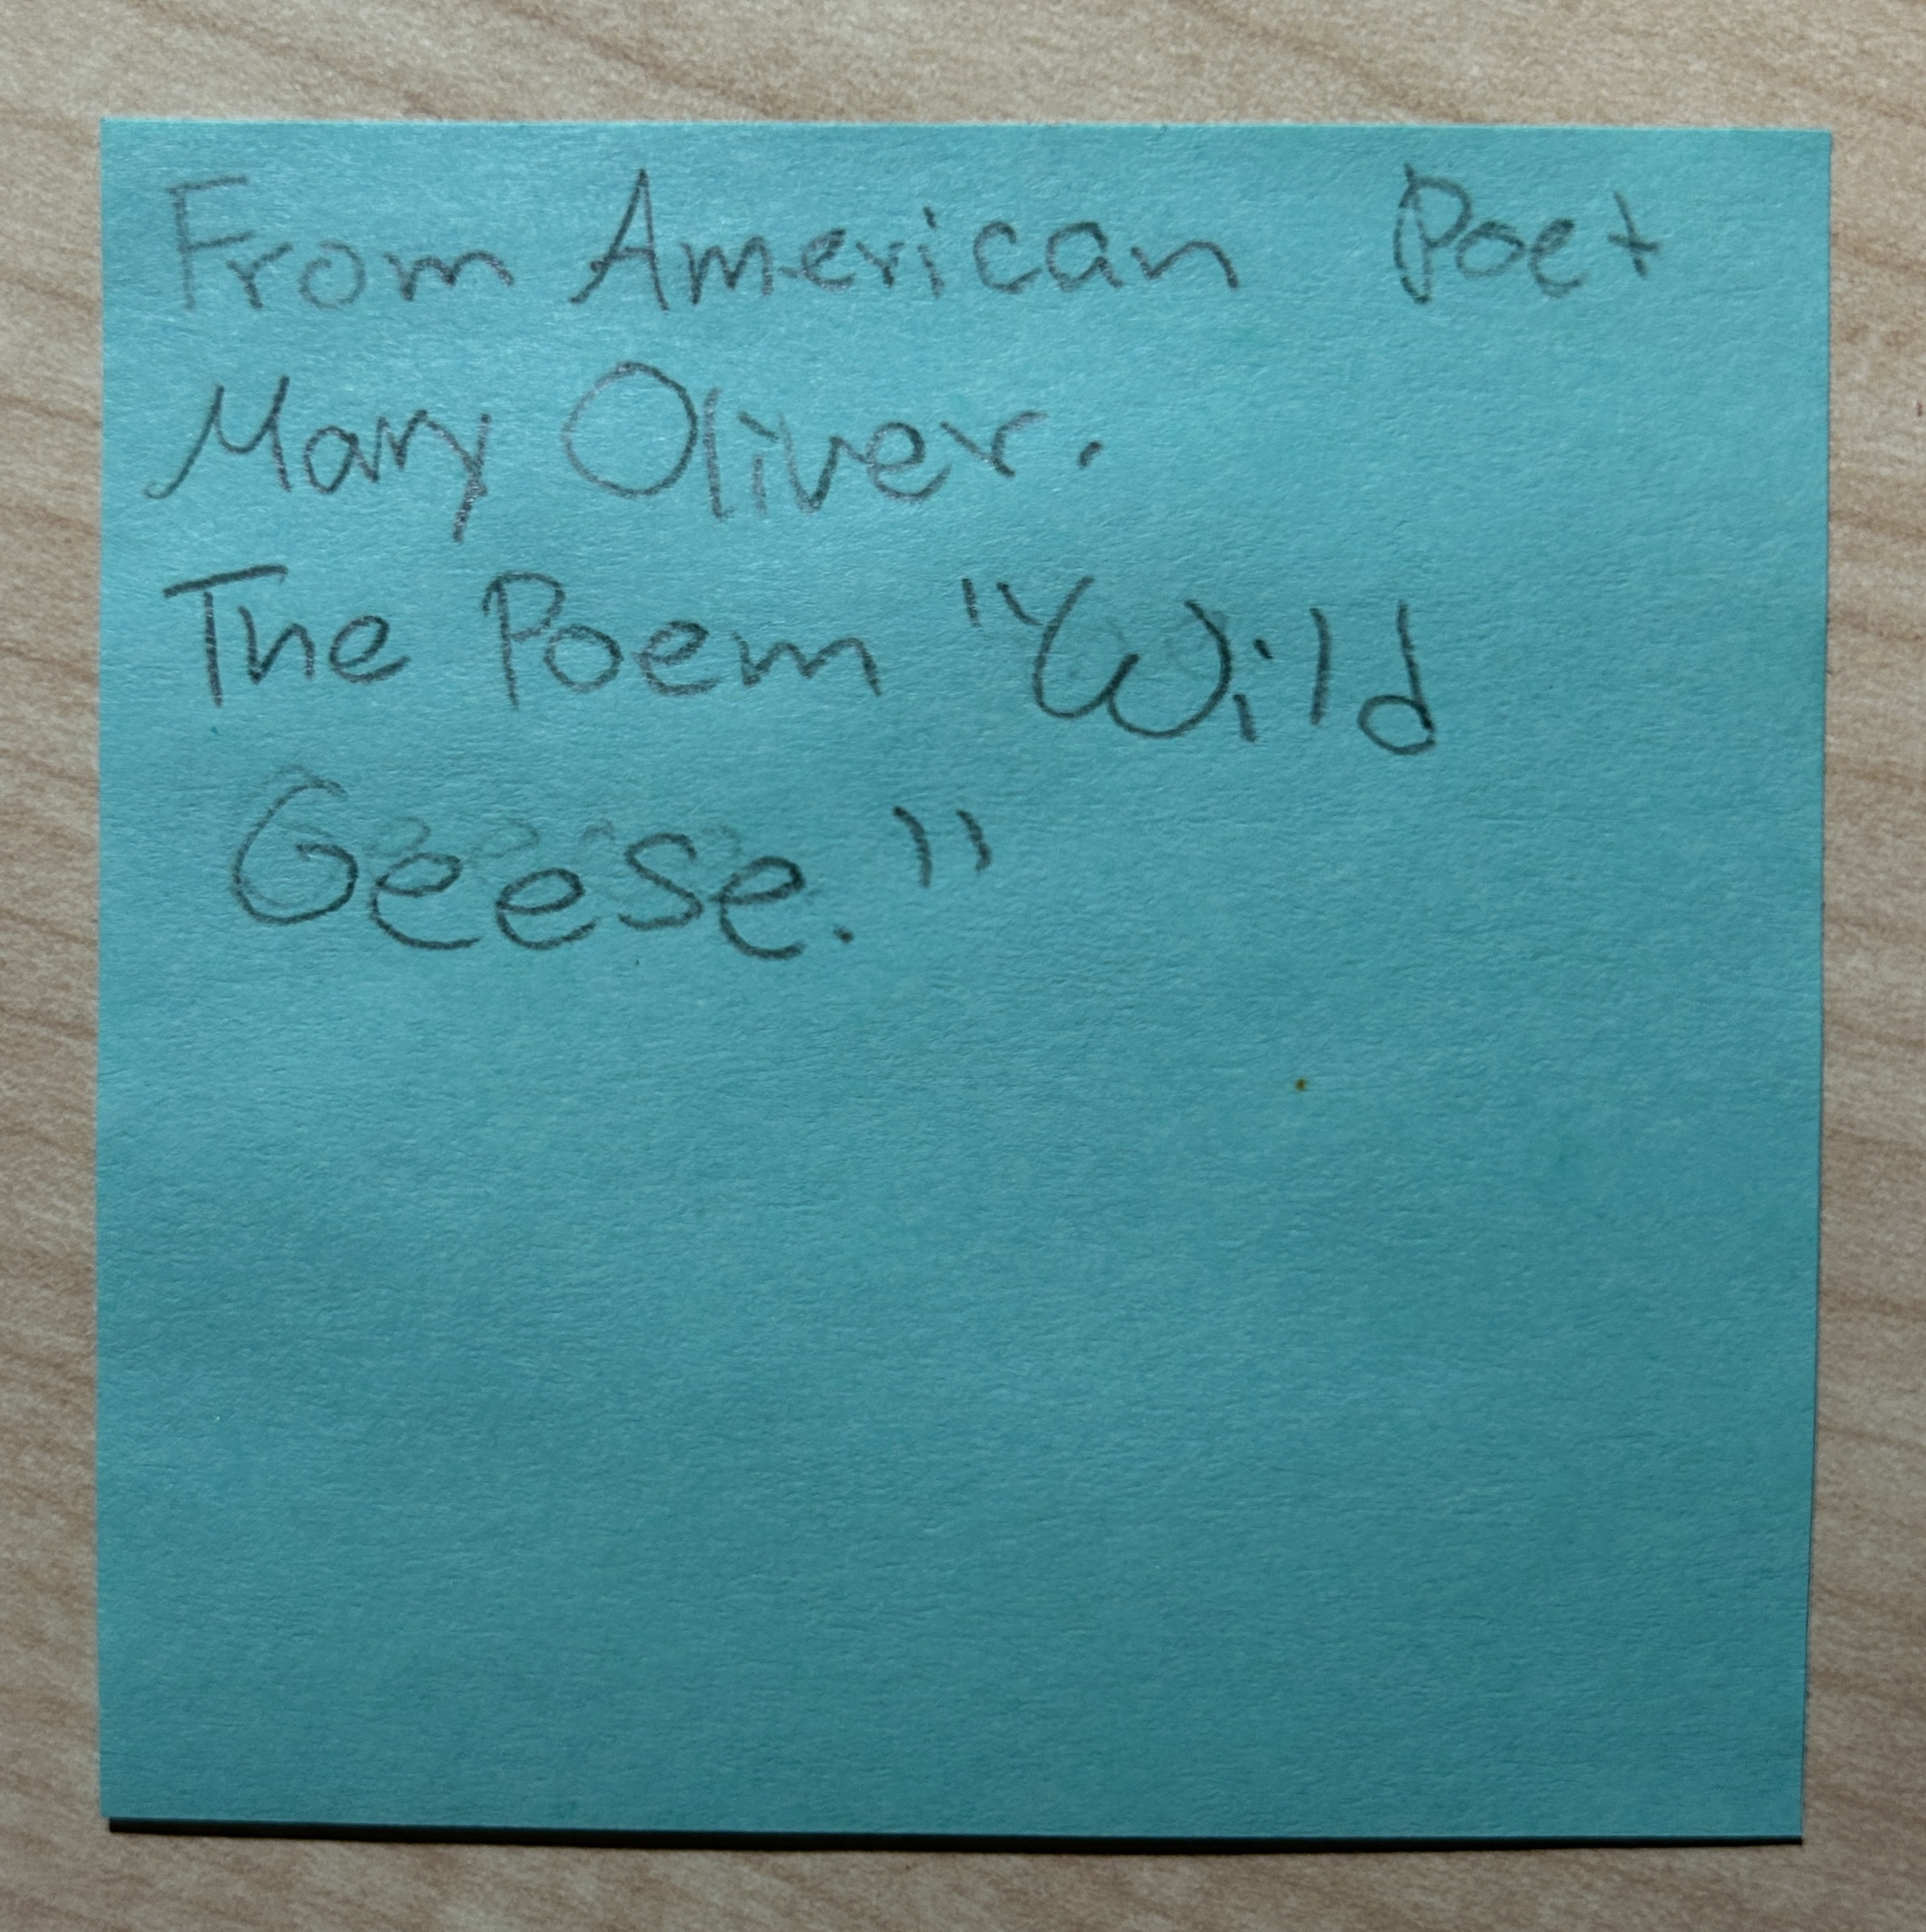 From American Poet
Mary Oliver.
The Poem "Wild
Geese."